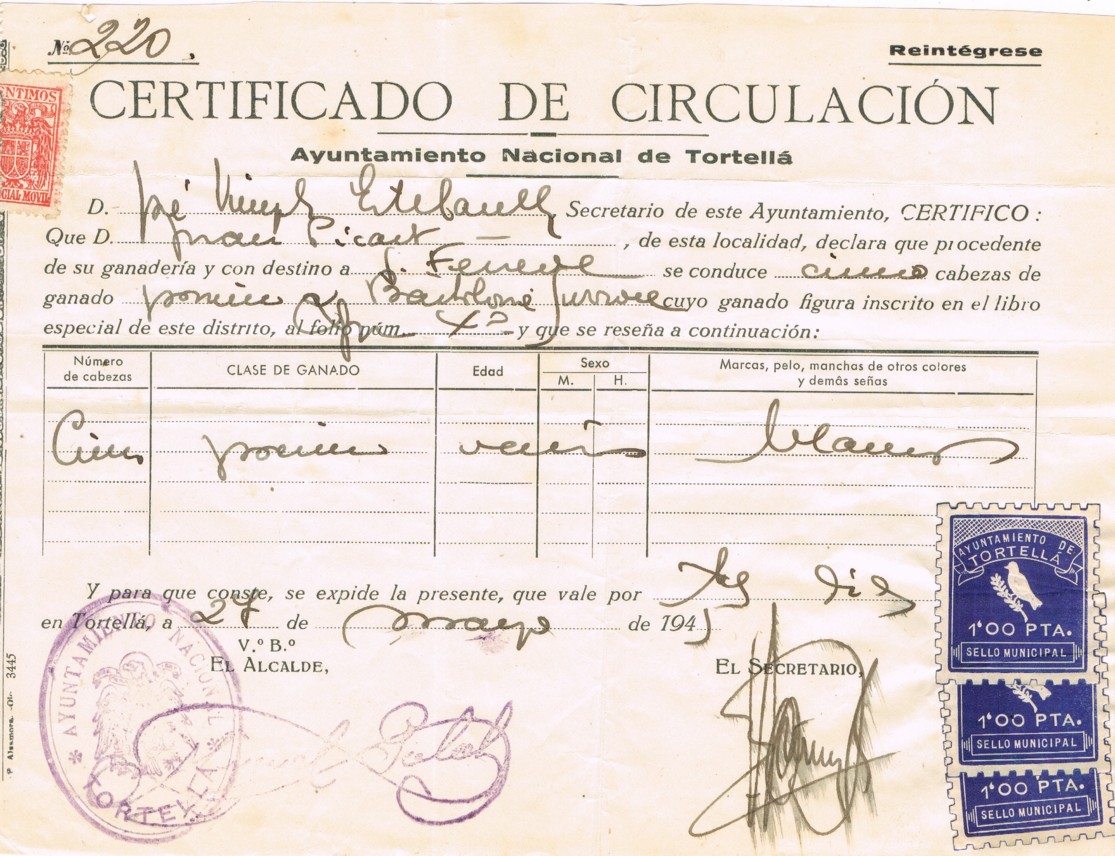 Nº 220.
Reintégrese
NTIMOS
CIAL MOVIL
CERTIFICADO DE CIRCULACIÓN
Ayuntamiento Nacional de Tortellá
D. Estebanell, Secretario de este Ayuntamiento, CERTIFICO :
Que D. Juan Picart — , de esta localidad, declara que procedente
de su ganadería y con destino a S. Ferreol se conduce cinco cabezas de
ganado porcino a Bartolomé cuyo ganado figura inscrito en el libro
especial de este distrito, al folio núm. y que se reseña a continuación:
Número de cabezas
CLASE DE GANADO
Edad
Sexo
M. H.
Marcas, pelo, manchas de otros colores
y demás señas
Cinco porcino varios blancos
Y para que conste, se expide la presente, que vale por tres días
en Tortellá, a 27 de mayo de 1945
V.º B.º
EL ALCALDE,
EL SECRETARIO,
* AYUNTAMIENTO NACIONAL * TORTELLÁ
AYUNTAMIENTO DE
TORTELLÁ
1'00 PTA.
SELLO MUNICIPAL
1'00 PTA.
SELLO MUNICIPAL
1'00 PTA.
SELLO MUNICIPAL
P Alzamora. -Ol- 3445